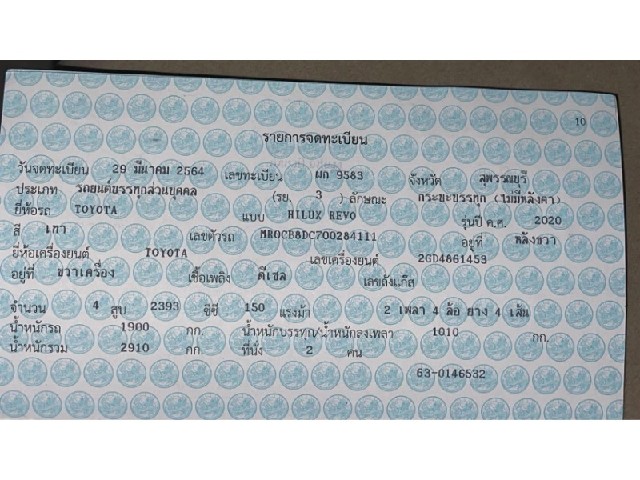 10
รายการจดทะเบียน
วันจดทะเบียน 29 มีนาคม 2564 เลขทะเบียน ผก 9583 จังหวัด สุพรรณบุรี
ประเภท รถยนต์บรรทุกส่วนบุคคล (รย. 3 ) ลักษณะ กระบะบรรทุก (ไม่มีหลังคา)
ยี่ห้อรถ TOYOTA แบบ HILUX REVO รุ่นปี ค.ศ. 2020
สี เทา เลขตัวรถ MR0CB8DC700284111 อยู่ที่ หลังขวา
ยี่ห้อเครื่องยนต์ TOYOTA เลขเครื่องยนต์ 2GD4661453
อยู่ที่ ขวาเครื่อง เชื้อเพลิง ดีเซล เลขถังแก๊ส
จำนวน 4 สูบ 2393 ซีซี 150 แรงม้า 2 เพลา 4 ล้อ ยาง 4 เส้น
น้ำหนักรถ 1900 กก. น้ำหนักบรรทุก/น้ำหนักลงเพลา 1010 กก.
น้ำหนักรวม 2910 กก. ที่นั่ง 2 คน
63-0146532